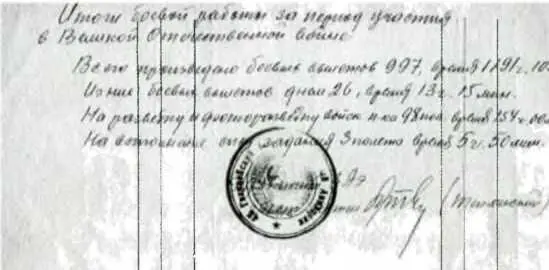 Итоги боевой работы за период участия
в Великой Отечественной войне
Всего произведено боевых вылетов 997, время 1191 г. 10
Из них боевых вылетов днем 26, время 13 г. 15 мин.
На разведку и фоторазведку войск пр-ка 98 время 154 г.
На выполнение спец задания 3 полета время 5 г. 50 мин.